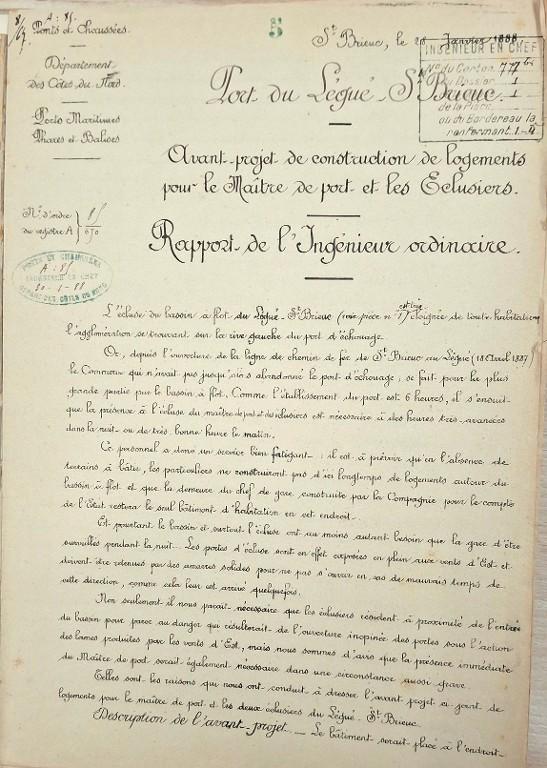 5
Ponts et Chaussées.
Département
des Côtes du Nord.
Ports Maritimes
Phares et Balises
N° d'ordre
du registre A } 85/670
PONTS ET CHAUSSÉES
A: 85
INGÉNIEUR EN CHEF
20-1-88
DÉPART. DES CÔTES DU NORD
St Brieuc, le 20 Janvier 1888.
INGÉNIEUR EN CHEF
N° du Carton 77 bis
du Dossier 1
de la Pièce 1
ou du Bordereau la
renfermant 1-4
Port du Légué-St Brieuc.
Avant-projet de construction de logements
pour le Maître de port et les Eclusiers.
Rapport de l'Ingénieur ordinaire.
L'écluse du bassin à flot du Légué-St Brieuc (voir pièce n° 1) est très éloignée de toute habitation,
l'agglomération se trouvant sur la rive gauche du port d'échouage.
Or, depuis l'ouverture de la ligne de chemin de fer de St Brieuc au Légué (18 Avril 1887)
le Commerce qui n'avait pas jusqu'alors abandonné le port d'échouage, se fait pour la plus
grande partie par le bassin à flot. Comme l'établissement du port est 6 heures, il s'ensuit
que la présence à l'écluse du maître de port et des éclusiers est nécessaire à des heures très avancées
dans la nuit ou de très bonne heure le matin.
Ce personnel a donc un service bien fatigant; il est à prévoir qu'en l'absence de
terrains à bâtir, les particuliers ne construiront pas d'ici longtemps de logements autour du
bassin à flot et que la demeure du chef de gare construite par la Compagnie pour le compte
de l'Etat restera le seul bâtiment d'habitation en cet endroit.
Et pourtant le bassin et surtout l'écluse ont au moins autant besoin que la gare d'être
surveillés pendant la nuit. Les portes d'écluse sont en effet exposées en plein aux vents d'Est et
doivent être retenues par des amarres solides pour ne pas s'ouvrir en cas de mauvais temps de
cette direction, comme cela leur est arrivé quelquefois.
Non seulement il nous paraît nécessaire que les éclusiers résident à proximité de l'entrée
du bassin pour parer au danger qui résulterait de l'ouverture inopinée des portes sous l'action
des lames produites par les vents d'Est, mais nous sommes d'avis que la présence immédiate
du Maître de port serait également nécessaire dans une circonstance aussi grave.
Telles sont les raisons qui nous ont conduit à dresser l'avant projet ci-joint de
logements pour le maître de port et les deux éclusiers du Légué-St Brieuc.
Description de l'avant-projet. _ Le bâtiment serait placé à l'endroit